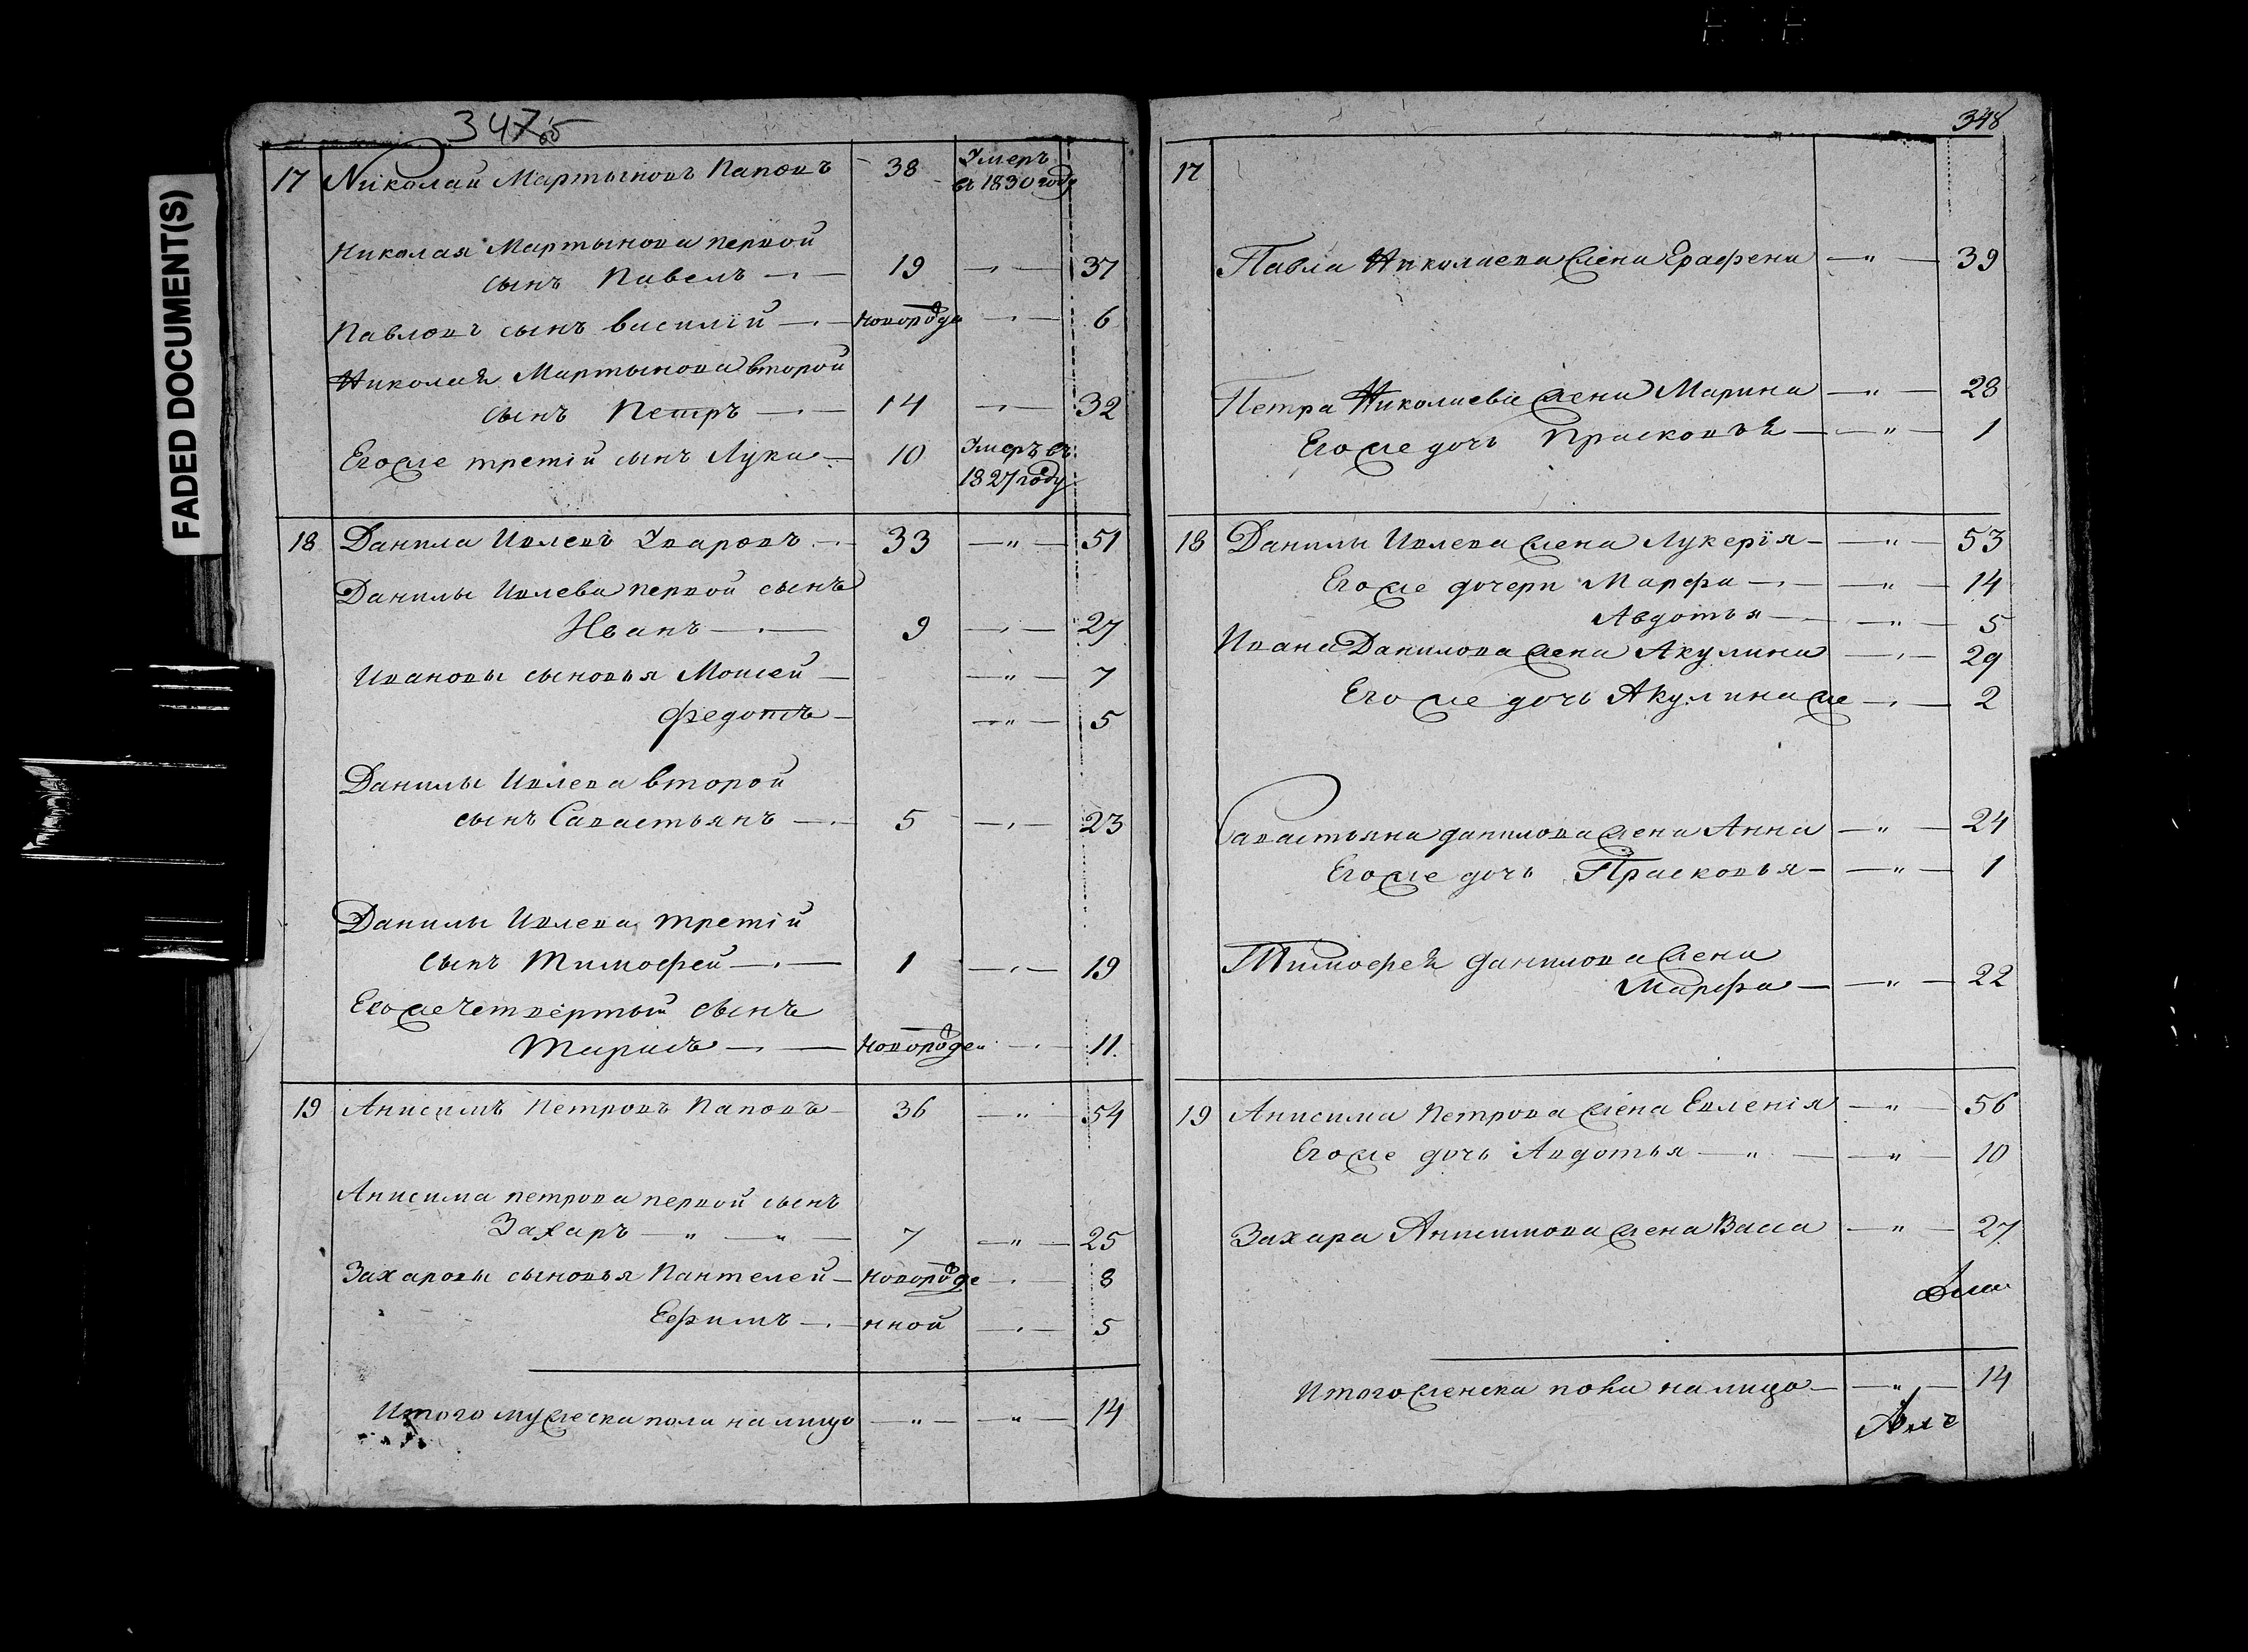 FADED DOCUMENT(S)
347об
17 Николай Мартыновъ Паповъ 38 Умеръ въ 1830 году
Николая Мартынова первой
сынъ Павелъ 19 37
Павловъ сынъ василій новорожде 6
Николая Мартынова второй
сынъ Петръ 14 32
Его же третій сынъ Лука 10 Умеръ въ 1827 году
18 Данила Ивлевъ Уваровъ 33 51
Данилы Ивлева первой сынъ
Иванъ 9 27
Ивановы сыновья Моисей 7
Федотъ 5
Данилы Ивлева второй
сынъ Савастьянъ 5 23
Данилы Ивлева третій
сынъ Тимофей 1 19
Его же четвертый сынъ
Тарасъ новорожден 11
19 Анисимъ Петровъ Паповъ 36 54
Анисима петрова первой сынъ
Захаръ 7 25
Захаровы сыновья Пантелей новорожде 8
Ефимъ нной 5
Итого мужеска пола на лицо 14
348
17
Павла Николаева жена Ерафена 39
Петра Николаева жена Марина 28
Его же дочь Прасковья 1
18 Данилы Ивлева жена Лукерія 53
Его же дочери Марфа 14
Авдотья 5
Ивана Данилова жена Акулина 29
Его же дочь Акулина же 2
Савастьяна данилова жена Анна 24
Его же дочь Прасковья 1
Тимофея данилова жена
Марфа 22
19 Анисима Петрова жена Евгенія 56
Его же дочь Авдотья 10
Захара Анисимова жена Васса 27
Итого женска пола на лицо 14